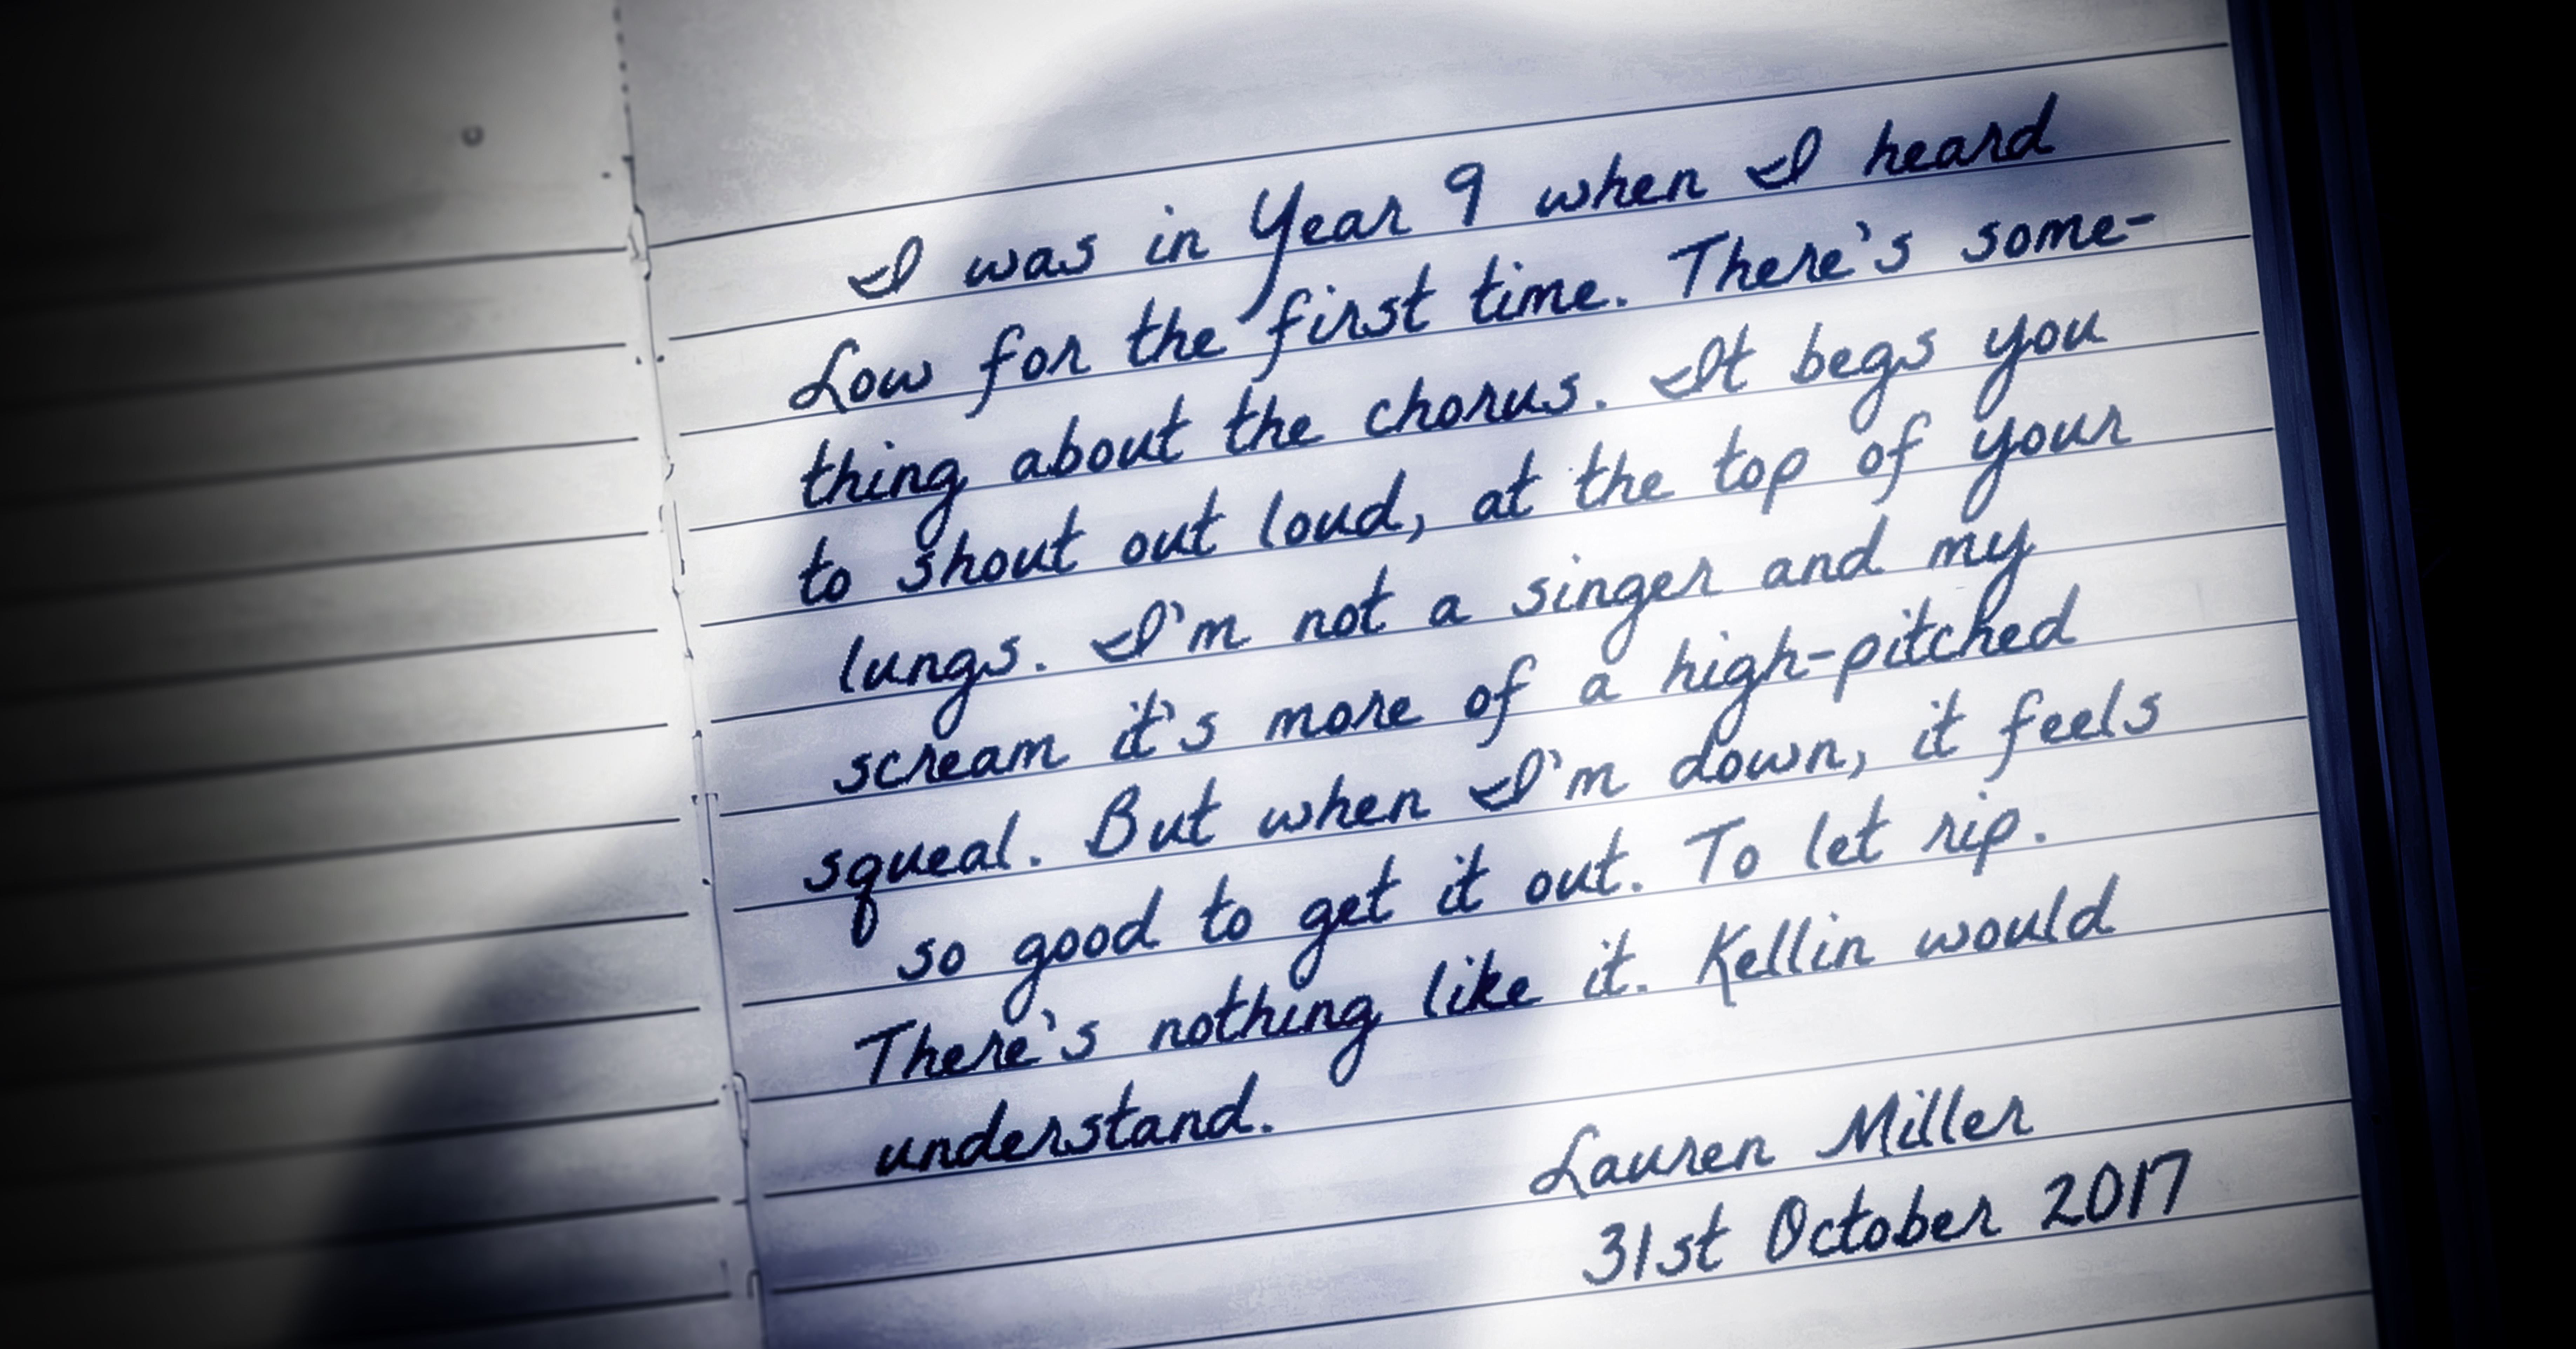 I was in Year 9 when I heard
Low for the first time. There's some-
thing about the chorus. It begs you
to shout out loud, at the top of your
lungs. I'm not a singer and my
scream it's more of a high-pitched
squeal. But when I'm down, it feels
so good to get it out. To let rip.
There's nothing like it. Kellin would
understand.
Lauren Miller
31st October 2017